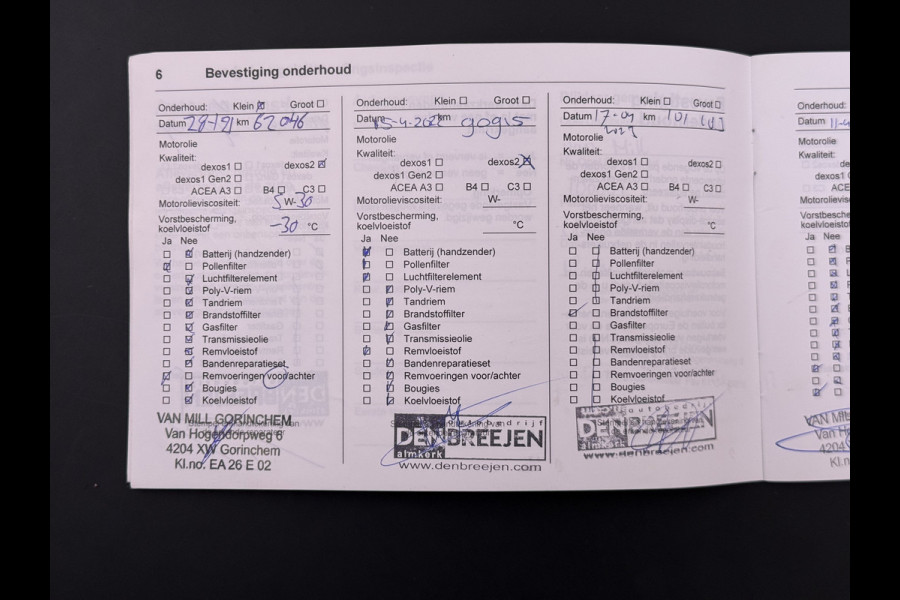 6 Bevestiging onderhoud
Onderhoud: Klein Groot
Datum km 62046
Motorolie
Kwaliteit:
dexos1 dexos2
dexos1 Gen2
ACEA A3 B4 C3
Motorolieviscositeit: 5W-30
Vorstbescherming,
koelvloeistof -30 °C
Ja Nee
Batterij (handzender)
Pollenfilter
Luchtfilterelement
Poly-V-riem
Tandriem
Brandstoffilter
Gasfilter
Transmissieolie
Remvloeistof
Bandenreparatieset
Remvoeringen voor/achter
Bougies
Koelvloeistof
VAN MILL GORINCHEM
Van Hogendorpweg 6
4204 XW Gorinchem
Kl.no. EA 26 E 02
Onderhoud: Klein Groot
Datum 15-4-2022 km 90915
Motorolie
Kwaliteit:
dexos1 dexos2
dexos1 Gen2
ACEA A3 B4 C3
Motorolieviscositeit: W-
Vorstbescherming,
koelvloeistof °C
Ja Nee
Batterij (handzender)
Pollenfilter
Luchtfilterelement
Poly-V-riem
Tandriem
Brandstoffilter
Gasfilter
Transmissieolie
Remvloeistof
Bandenreparatieset
Remvoeringen voor/achter
Bougies
Koelvloeistof
autobedrijf
DEN BREEJEN
almkerk
www.denbreejen.com
Onderhoud: Klein Groot
Datum 17-04 km
Motorolie
Kwaliteit:
dexos1 dexos2
dexos1 Gen2
ACEA A3 B4 C3
Motorolieviscositeit: W-
Vorstbescherming,
koelvloeistof °C
Ja Nee
Batterij (handzender)
Pollenfilter
Luchtfilterelement
Poly-V-riem
Tandriem
Brandstoffilter
Gasfilter
Transmissieolie
Remvloeistof
Bandenreparatieset
Remvoeringen voor/achter
Bougies
Koelvloeistof
autobedrijf
DEN BREEJEN
almkerk
www.denbreejen.com
Onderhoud:
Datum
Motorolie
Kwaliteit:
dexos1
dexos1
ACE
Motorolievis
Vorstbesche
koelvloeistof
Ja Nee
VAN MIL
4204
Kl.n